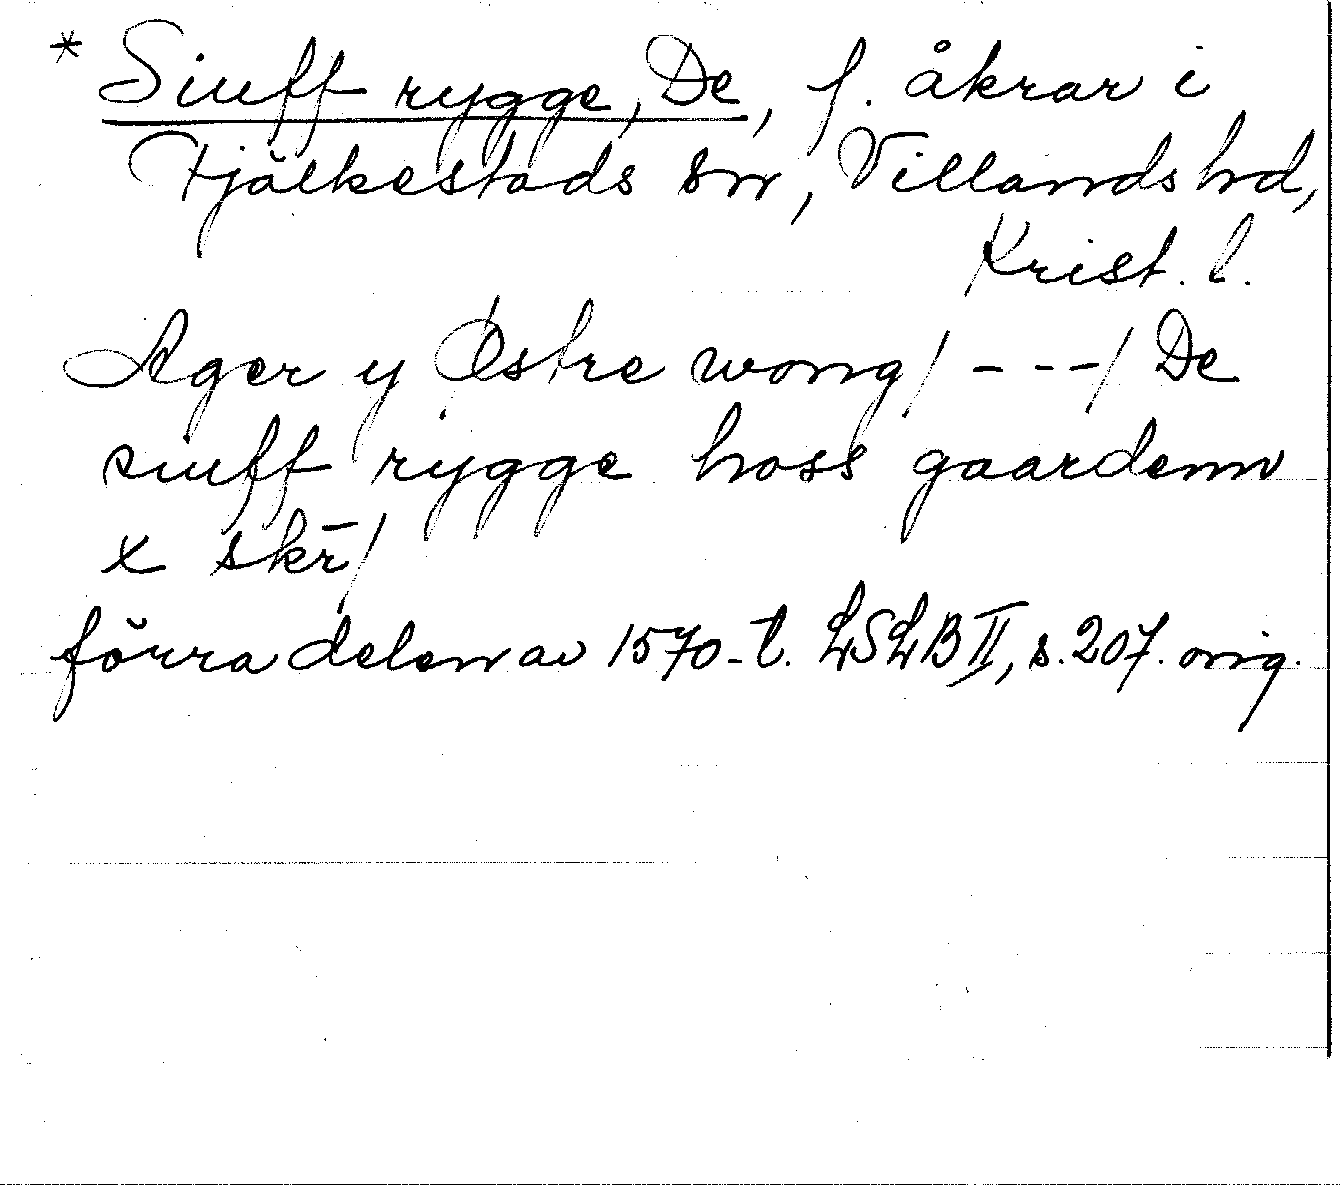 * Siuff rygge, De, f. åkrar i
Fjälkestads sn, Villands hd,
Krist. l.
Ager y Østre wong/ ---/ De
siuff rygge hoss gaardenn
x skr̄/
förra delen av 1570-t. LSLB II, s. 207. orig.